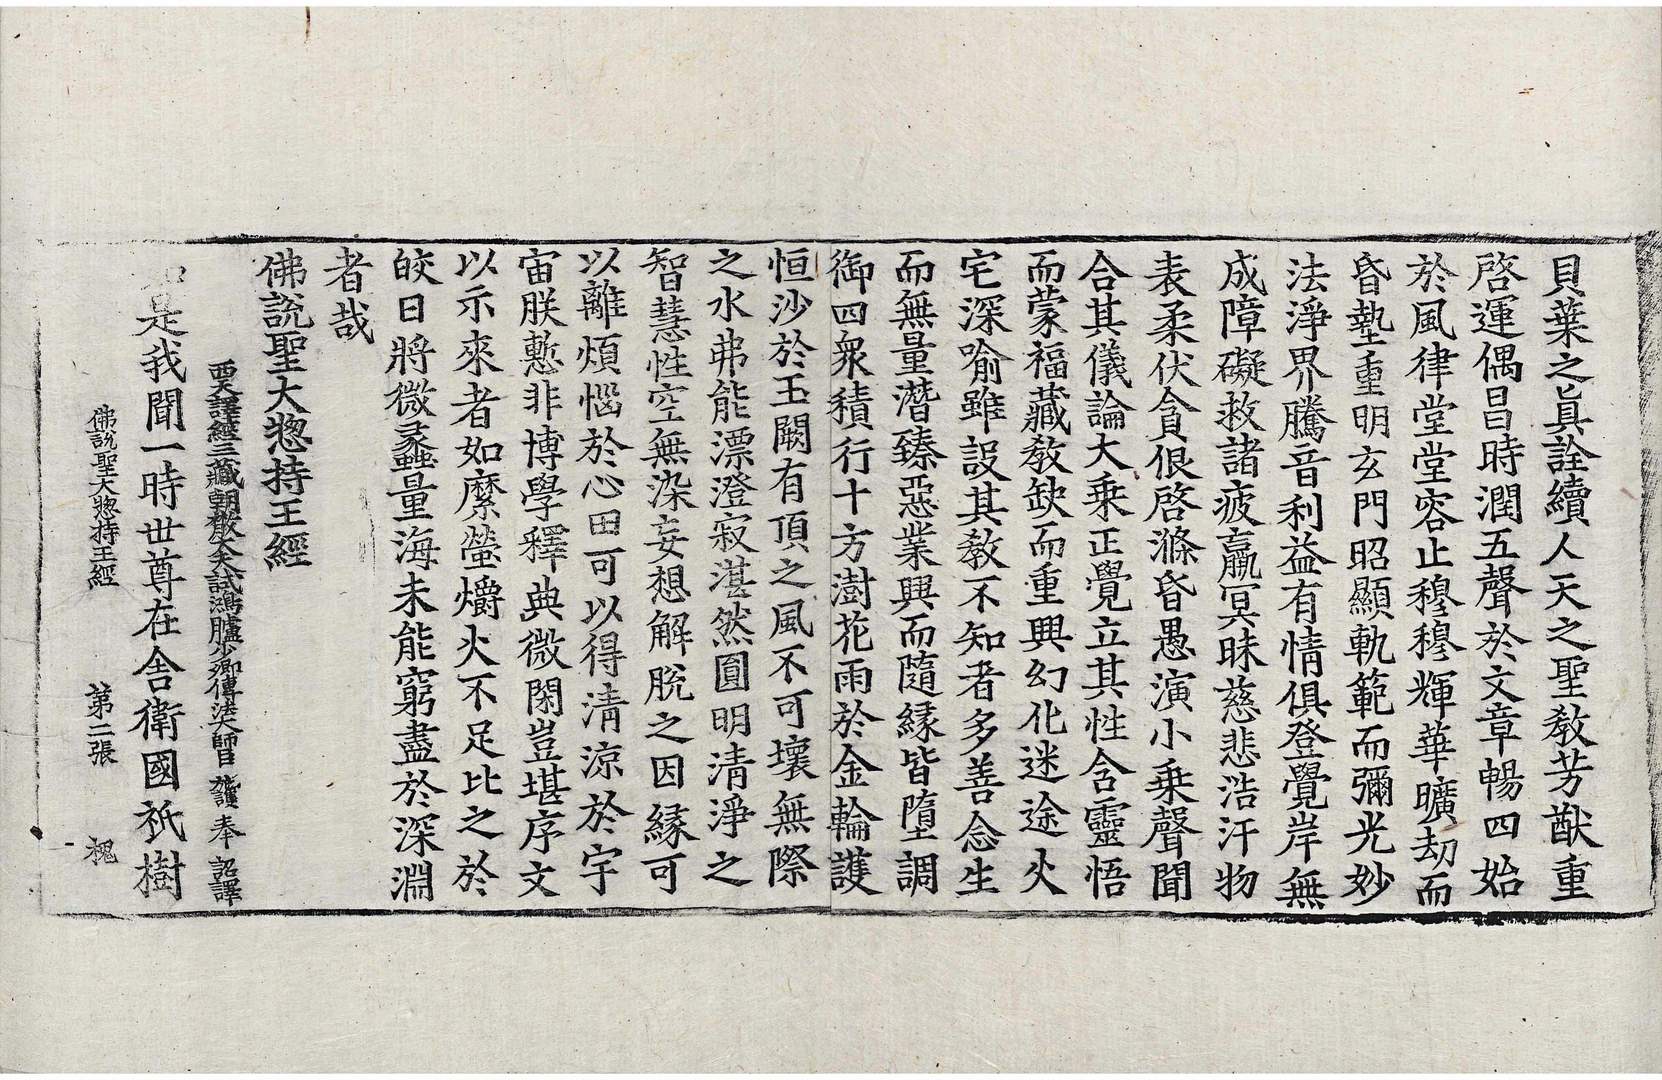 貝葉之眞詮續人天之聖教芳猷重
啓運偶昌時潤五聲於文章暢四始
於風律堂堂容止穆穆輝華曠劫而
昏蟄重明玄門昭顯軌範而彌光妙
法淨界騰音利益有情俱登覺岸無
成障礙救諸疲羸冥昧慈悲浩汗物
表柔伏貪佷啓滌昏愚演小乘聲聞
合其儀論大乘正覺立其性含靈悟
而蒙福藏教缺而重興幻化迷途火
宅深喻雖設其教不知者多善念生
而無量潛臻惡業興而隨緣皆墮調
御四衆積行十方澍花雨於金輪護
恒沙於玉闕有頂之風不可壞無際
之水弗能漂澄寂湛然圓明清淨之
智慧性空無染妄想解脫之因緣可
以離煩惱於心田可以得清涼於宇
宙朕慙非博學釋典微閑豈堪序文
以示來者如縻螢爝火不足比之於
皎日將微蠡量海未能窮盡於深淵
者哉
佛說聖大惣持王經
西天譯經三藏朝散大夫試鴻臚少卿傳法大師臣施護奉 詔譯
如是我聞一時世尊在舍衛國祇樹
佛說聖大惣持王經 第二張 槐